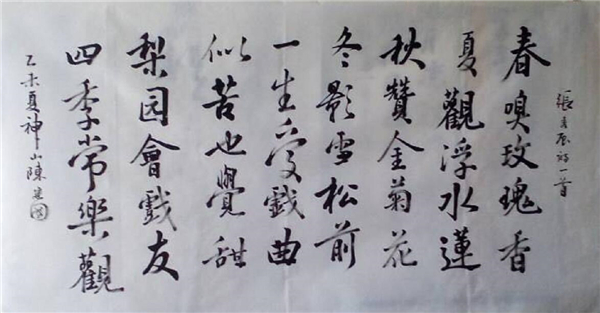 春嗅玫瑰香
夏觀浮水蓮
秋贊金菊花
冬影雪松前
一生受戲曲
似苦也覺甜
梨园會戲友
四季常樂觀
乙未夏神山陳